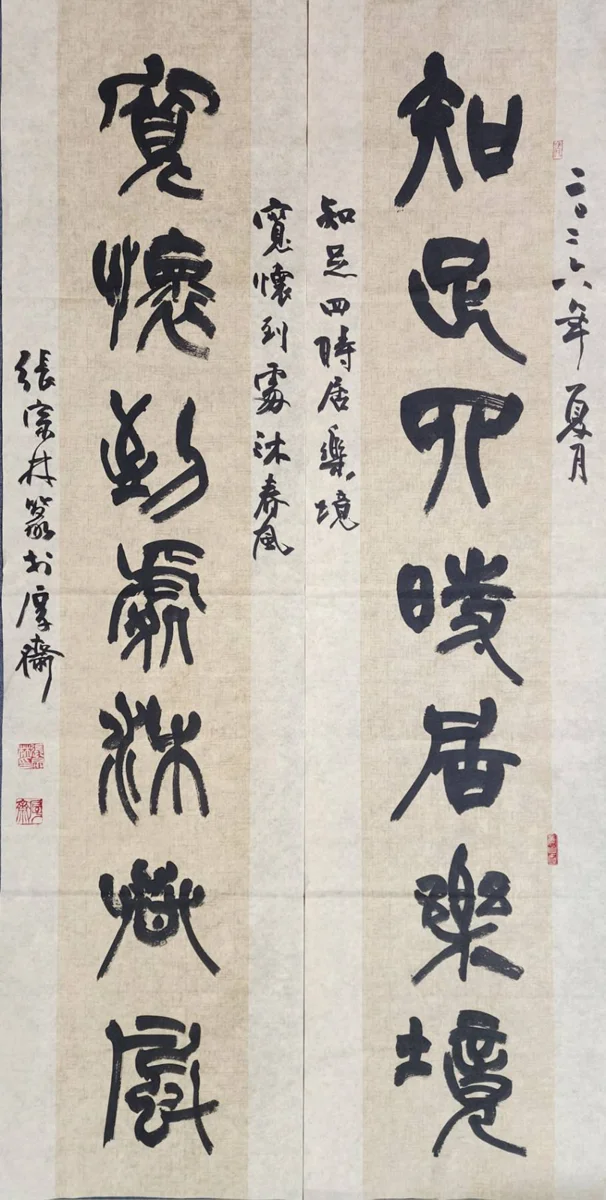 二〇二六年夏月
知足四時居樂境
知足四時居樂境
寬懷到處沐春風
寬懷到處沐春風
張宗林篆於厚齋